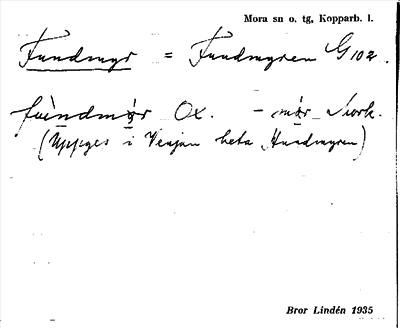 Mora sn o. tg, Kopparb. l.
Fundmyr = Fundmyren G 102.
fùndmỳr Ox. - mỳr Vork.
(Uppges i Venjan heta Hundmyren)
Bror Lindén 1935